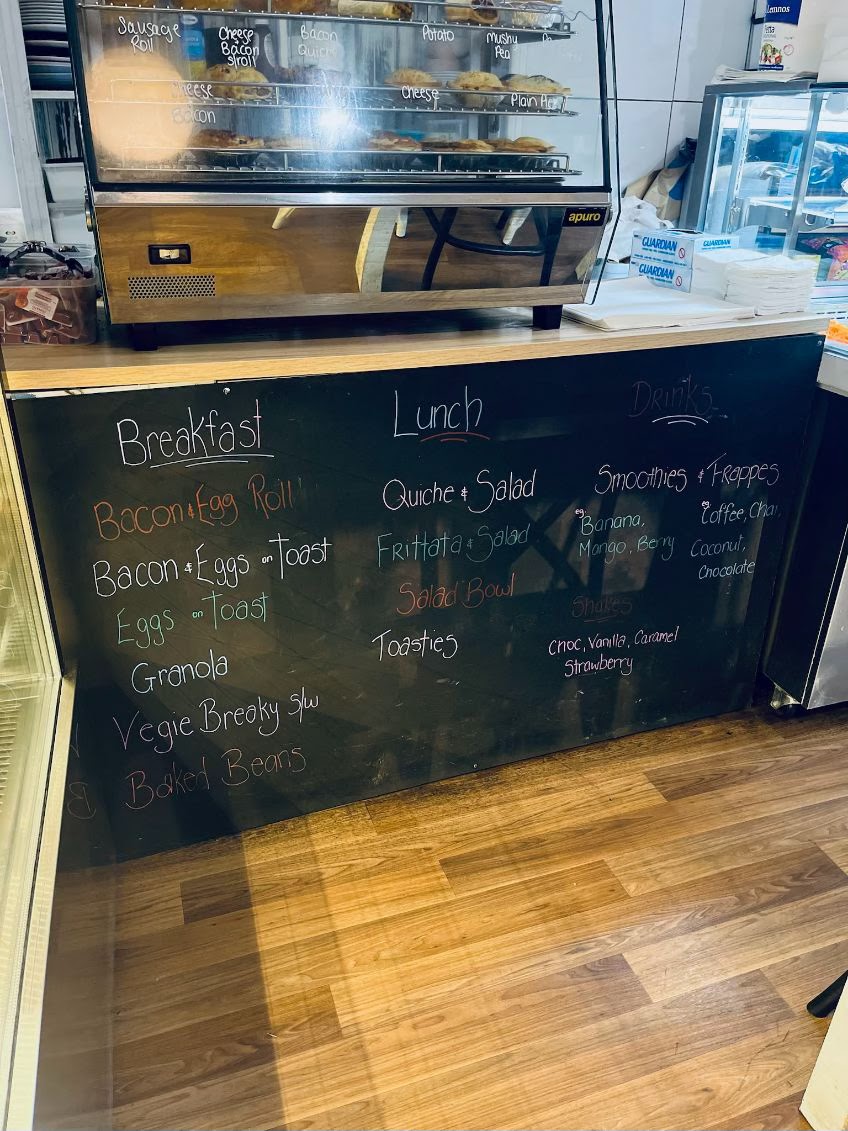 Lemnos
Sausage
Roll
Cheese
Bacon
Bacon
Quiche
Potato
Mushy
Pea
Cheese
Bacon
Cheese
apuro
GUARDIAN
GUARDIAN
GUARDIAN
Breakfast
Bacon & Egg Roll
Bacon & Eggs on Toast
Eggs on Toast
Granola
Vegie Breaky s/w
Baked Beans
Lunch
Quiche & Salad
Frittata & Salad
Salad Bowl
Toasties
Drinks
Smoothies & Frappes
eg.
Banana,
Mango, Berry
eg.
Coffee, Chai,
Coconut,
Chocolate
Shakes
Choc, Vanilla, Caramel
Strawberry